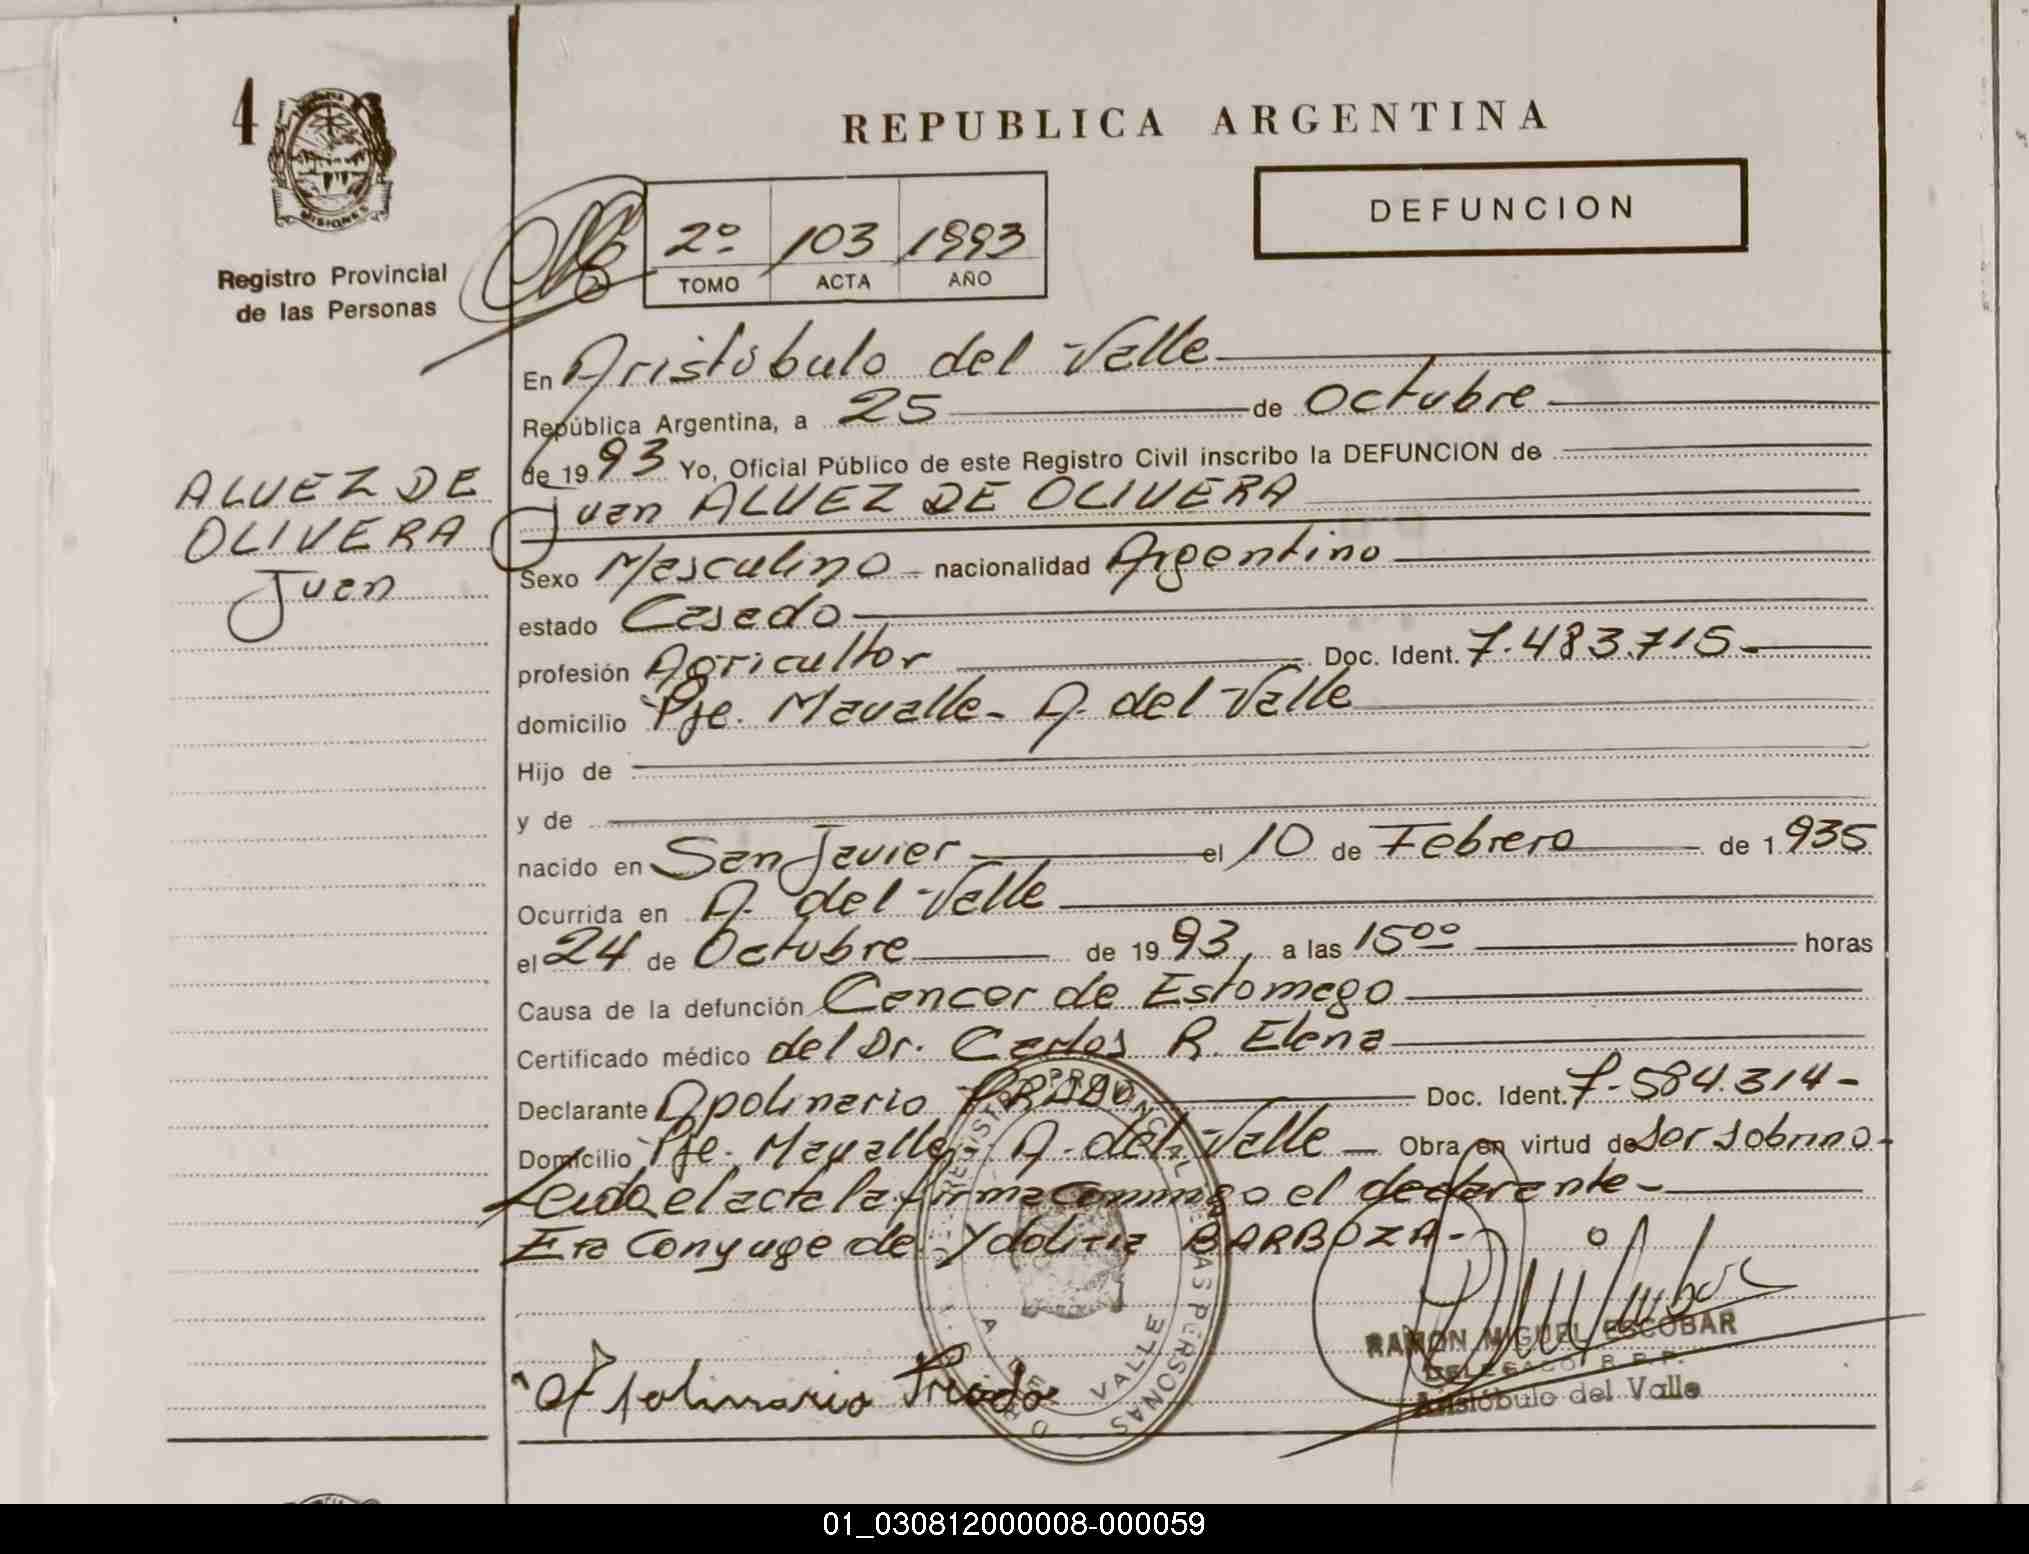 4
MISIONES
Registro Provincial
de las Personas
REPUBLICA ARGENTINA
DEFUNCION
2º 103 1993
TOMO ACTA AÑO
En Aristóbulo del Valle
República Argentina, a 25 de Octubre
de 1993 Yo, Oficial Público de este Registro Civil inscribo la DEFUNCION de
Juan ALVEZ DE OLIVERA
ALVEZ DE
OLIVERA
Juan
Sexo Masculino nacionalidad Argentino
estado Casado
profesión Agricultor Doc. Ident. 7.483.715
domicilio Pje. Mavalle - A. del Valle
Hijo de
y de
nacido en San Javier el 10 de Febrero de 1935
Ocurrida en A. del Valle
el 24 de Octubre de 1993, a las 15⁰⁰ horas
Causa de la defunción Cancer de Estomago
Certificado médico del Dr. Carlos R. Elena
Declarante Apolinario PRADO Doc. Ident. 7.584.314-
Domicilio Pje. Mavalle - A. del Valle — Obra en virtud de ser sobrino-
Leida el acta la firma conmigo el declarante-
Era Conyuge de BARBOZA-
REGISTRO PROVINCIAL DE LAS PERSONAS
VALLE
Apolinario Prado
RAMON MIGUEL ESCOBAR
DELEGADO R.P.P.
Aristóbulo del Valle
01_030812000008-000059